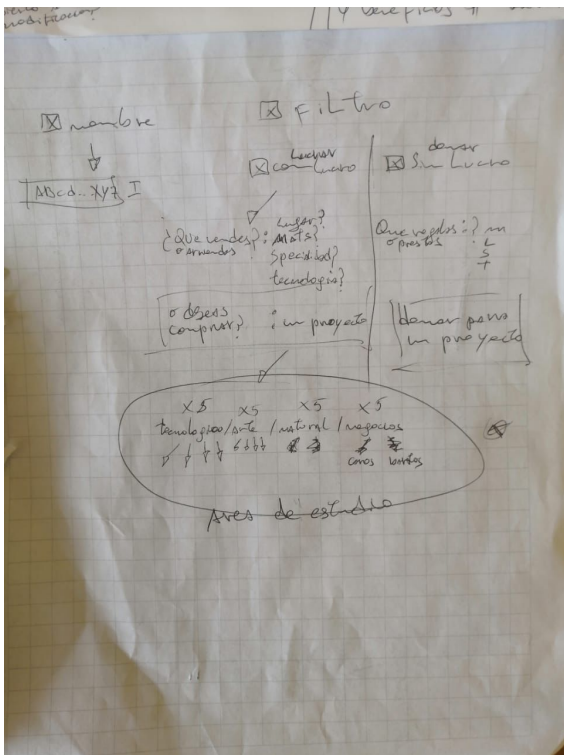 modificacion
y beneficios
☒ nombre
☒ FiLtro
ABcd..XYZ I
Luchar
☒ con Lucro
donar
☒ Sin Lucro
¿Que vendes?:
o arriendas
Lugar?
Mats?
Specialidad?
tecnologia?
Que regalas:? m
o prestas L
S
T
o deseas
comprar? : un proyecto
donar para
un proyecto
X5 X5 X5 X5
tecnologico/arte/natural/negocios
caros baratos
Area de estudio